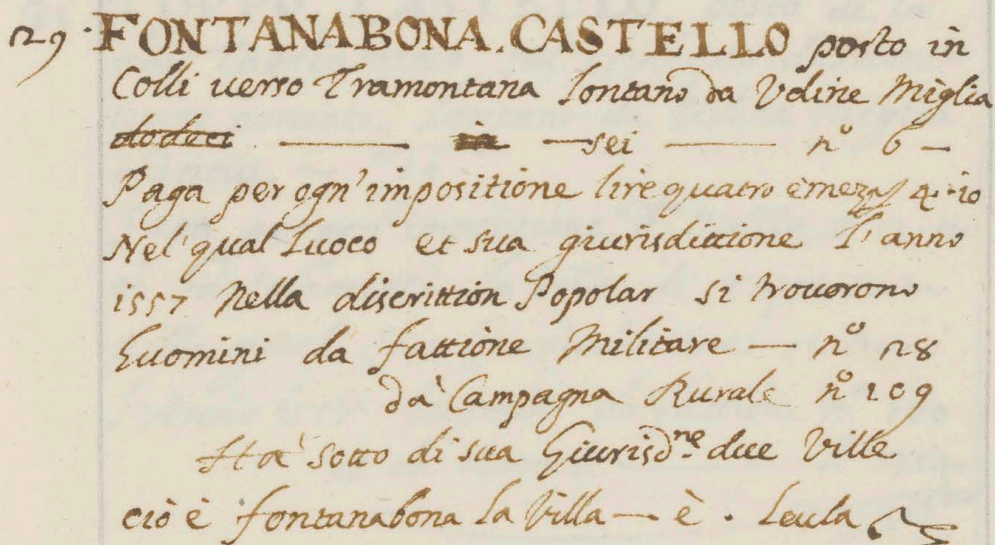 29. FONTANABONA. CASTELLO posto in
Colli uerso Tramontana lontano da Vdine Miglia
dodeci — in — sei — n.º 6 —
Paga per ogn' impositione lire quatro è meza 4:10
Nel' qual luoco et sua giurisdittione l'anno
1557 Nella discrittion Popolar si trouorono
huomini da fattione Militare — n.º 28
dà Campagna Rurale n.º 109
Hà sotto di sua Giurisd.ne due Ville
ciò è fontanabona la Villa — è . Leula